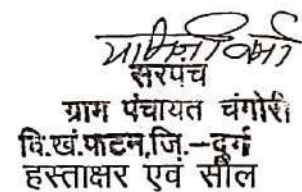 यामिनी वर्मा
सरपंच
ग्राम पंचायत चंगोरी
वि.खं.फाटन,जि.–दुर्ग
हस्ताक्षर एवं सील